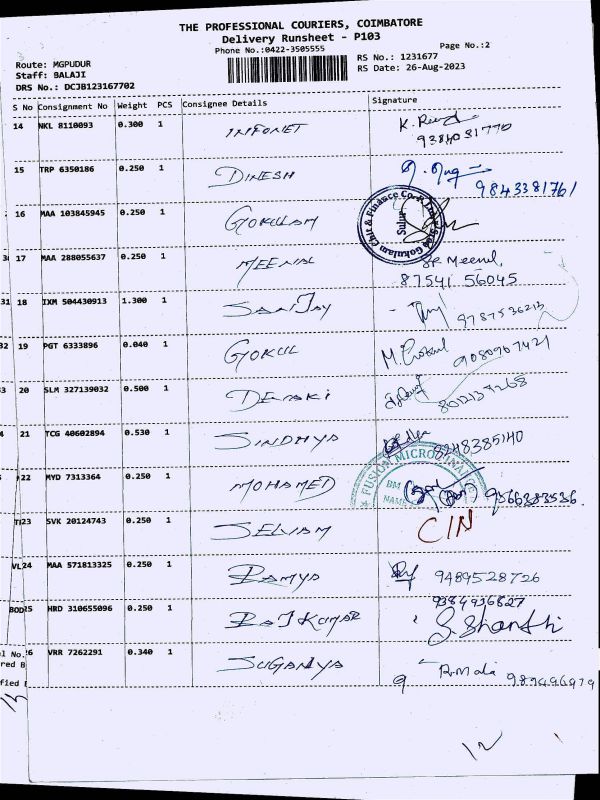 THE PROFESSIONAL COURIERS, COIMBATORE
Delivery Runsheet - P103
Phone No.:0422-3505555
Page No.:2
Route: MGPUDUR
Staff: BALAJI
DRS No.: DCJB123167702
RS No.: 1231677
RS Date: 26-Aug-2023
S No Consignment No Weight PCS Consignee Details Signature
14 NKL 8110093 0.300 1 INFONET K. 9384031770
15 TRP 6350186 0.250 1 DINESH 9843381761
16 MAA 103845945 0.250 1 GOKULAM
Chit & Finance Co Sulur Gokulam
17 MAA 288055637 0.250 1 MEENAL SP. Meenal,
87541 56045
18 IXM 504430913 1.300 1 SANJAY 9787536213
19 PGT 6333896 0.040 1 GOKUL M. Gokul 9080967421
20 SLM 327139032 0.500 1 DEVAKI
21 TCG 40602894 0.530 1 SINDHYA 9248385140
FUSION MICROFINANCE
BM
NAME
22 MYD 7313364 0.250 1 MOHAMED 9566383536.
23 SVK 20124743 0.250 1 SELVAM C/N
24 MAA 571813325 0.250 1 RAMYA 9489528726
25 HRD 310655096 0.250 1 RAJKUMAR 9384936827
S. Shanthi
VRR 7262291 0.340 1 SUGANYA R. Mala